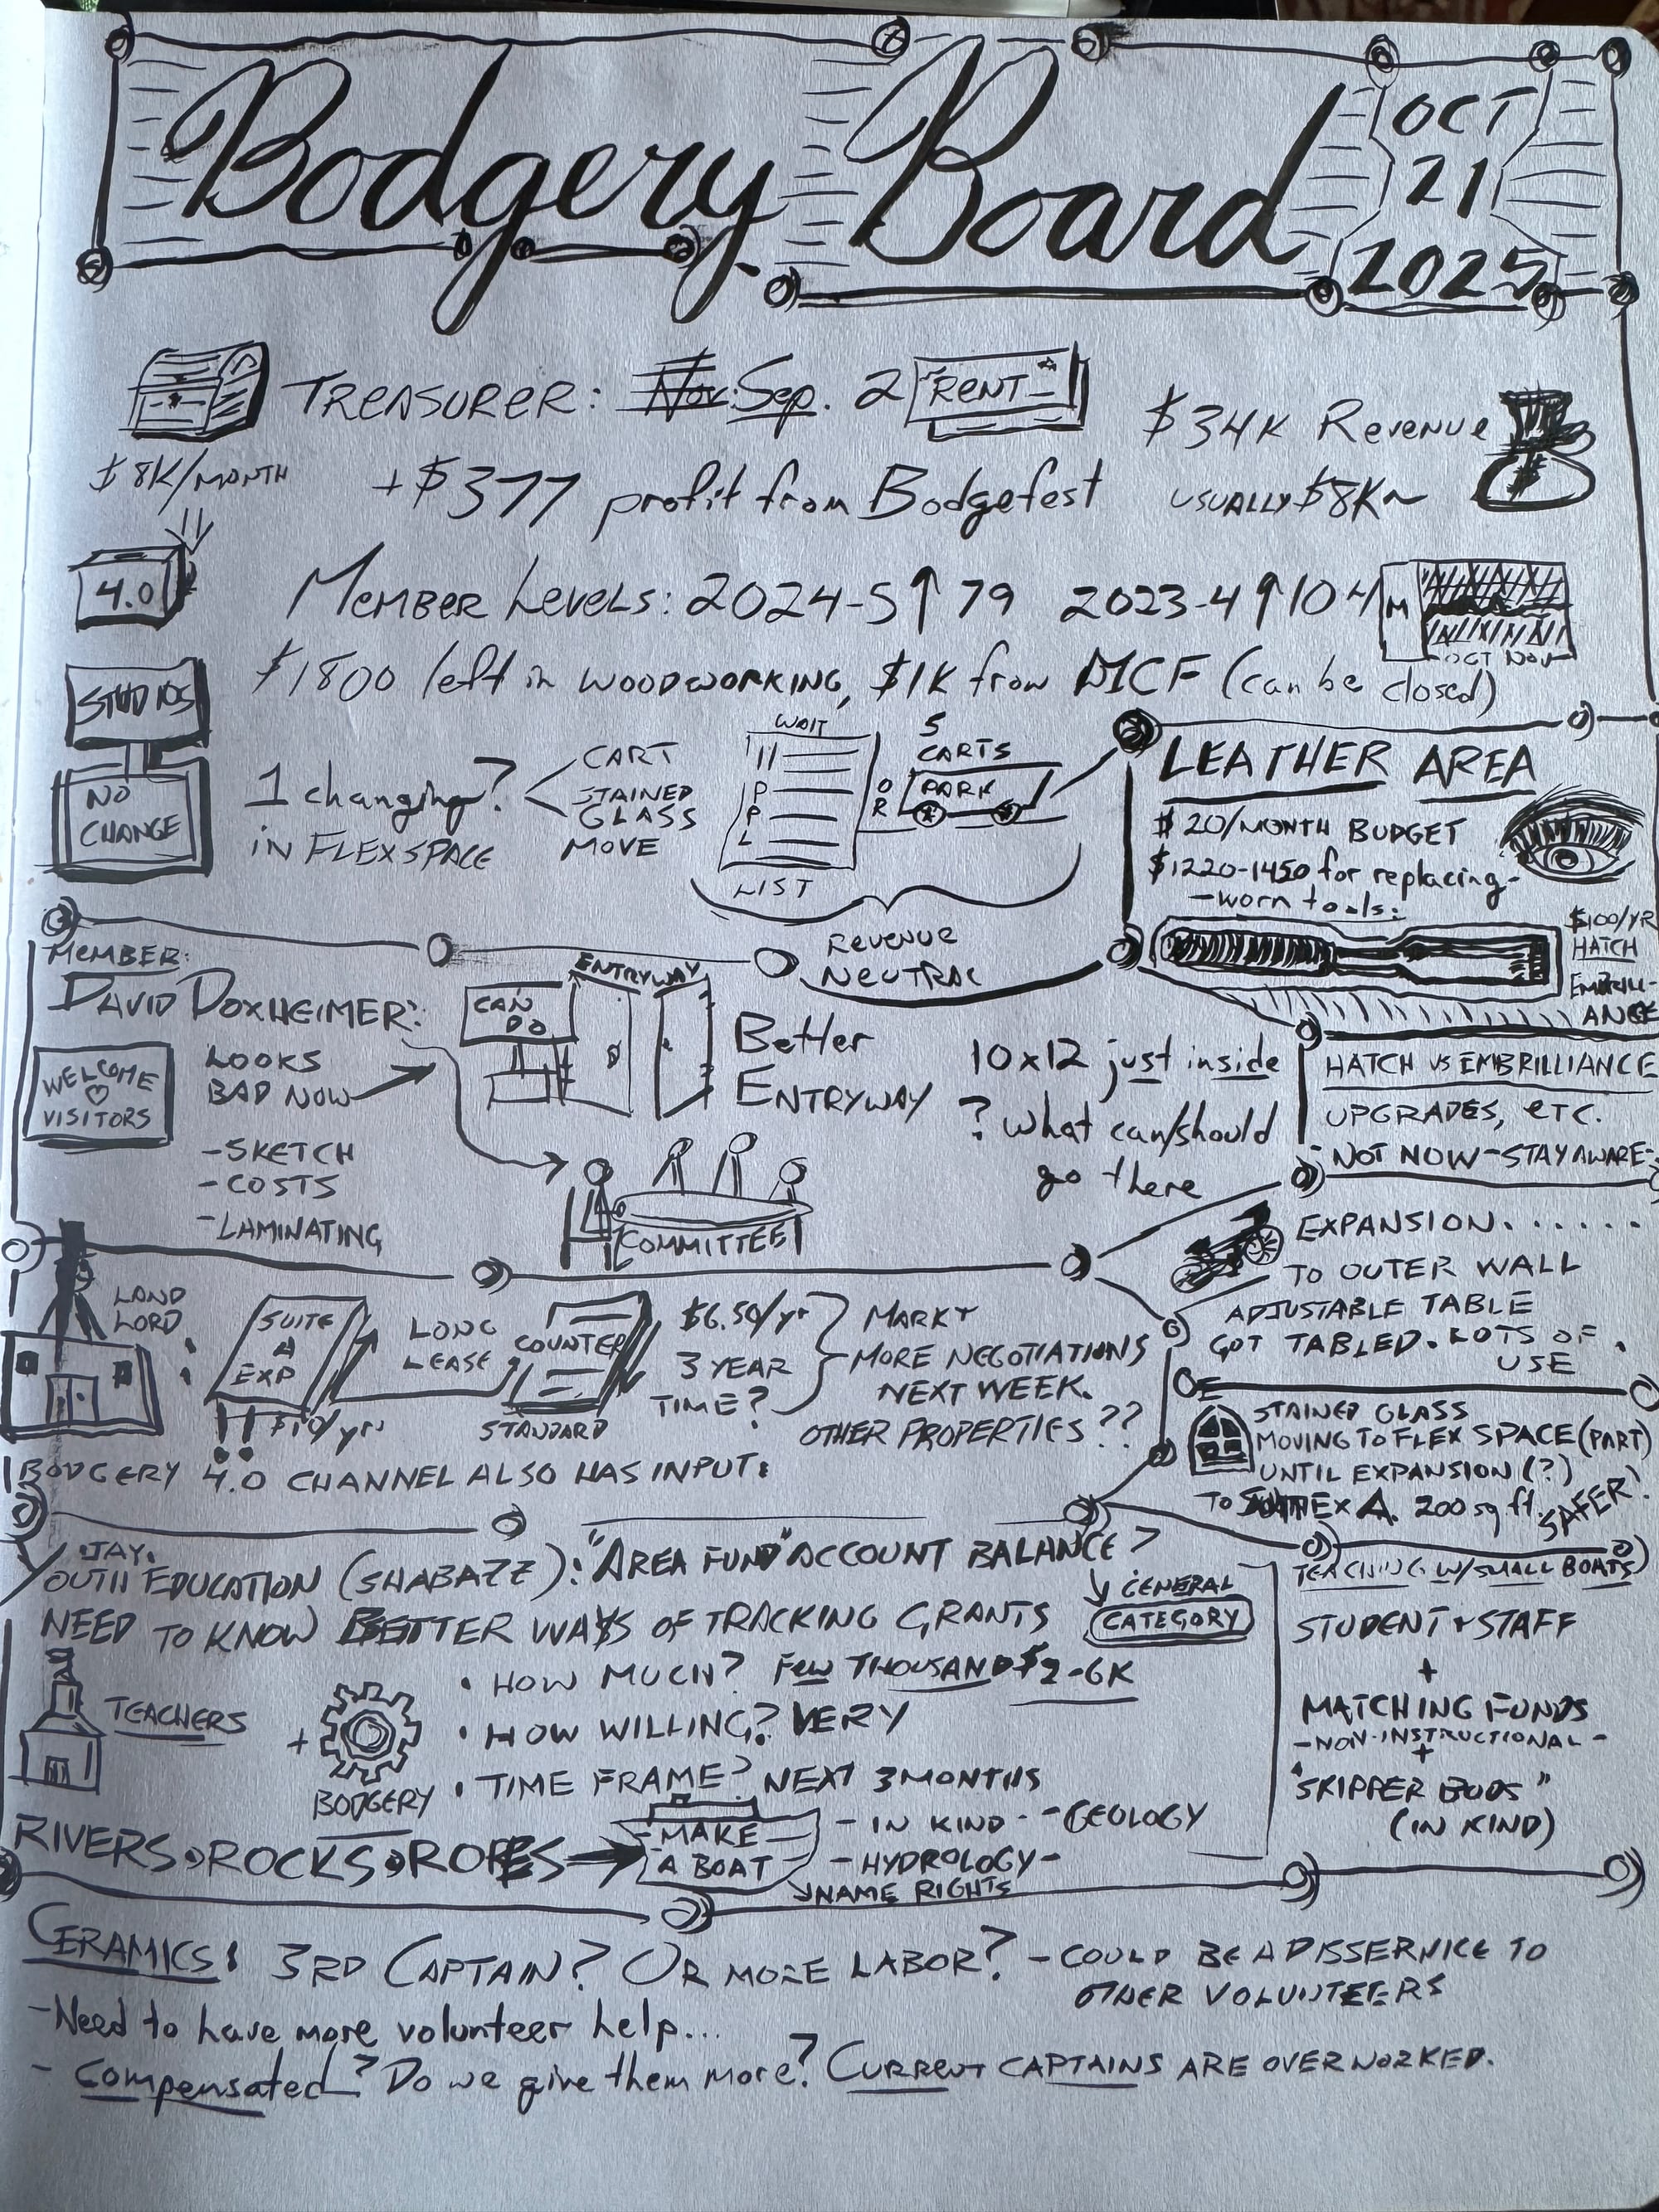 Bodgery Board
OCT
21
2025
TREASURER: Nov. Sep. 2 RENT
$34K Revenue
$
$8K/MONTH
+$377 profit from Bodgefest
USUALLY $8K~
4.0
MEMBER LEVELS: 2024-5↑79 2023-4↑104
M
OCT NOV
$1800 left in WOODWORKING, $1K from MCF (can be closed)
STUDIOS
NO
CHANGE
1 changing?
in FLEXSPACE
CART
STAINED
GLASS
MOVE
WAIT
LIST
OR
5
CARTS
PARK
REVENUE
NEUTRAL
LEATHER AREA
$20/MONTH BUDGET
$1220-1450 for replacing-
-worn tools:
$100/YR
HATCH
EMBRILL-
ANCE
HATCH VS EMBRILLIANCE
UPGRADES, ETC.
-NOT NOW-STAY AWARE-
MEMBER:
DAVID DOXHEIMER:
WELCOME
♡
VISITORS
LOOKS
BAD NOW
-SKETCH
-COSTS
-LAMINATING
CAN
DO
ENTRYWAY
Better
ENTRYWAY
10x12 just inside
? what can/should
go there
COMMITTEE
EXPANSION.......
TO OUTER WALL
ADJUSTABLE TABLE
GOT TABLED. LOTS OF
USE
LAND
LORD
:
SUITE
A
EXP
!! $10/yr
LONG
LEASE
COUNTER
STANDARD
$6.50/yr
3 YEAR
TIME?
MARKY
MORE NEGOTIATIONS
NEXT WEEK.
OTHER PROPERTIES??
BODGERY 4.0 CHANNEL ALSO HAS INPUT:
STAINED GLASS
MOVING TO FLEX SPACE (PART)
UNTIL EXPANSION (?)
TO A. 200 sq ft. SAFER!
·JAY·
YOUTH EDUCATION (SHABAZZ): "AREA FUND" ACCOUNT BALANCE?
NEED TO KNOW BETTER WAYS OF TRACKING GRANTS
GENERAL
CATEGORY
TEACHERS
+
BODGERY
• HOW MUCH? FEW THOUSAND $2-6K
• HOW WILLING? VERY
• TIME FRAME? NEXT 3 MONTHS
RIVERS•ROCKS•ROPES
MAKE
A BOAT
- IN KIND - -GEOLOGY
-HYDROLOGY-
NAME RIGHTS
TEACHING W/SMALL BOATS
STUDENT & STAFF
+
MATCHING FUNDS
-NON-INSTRUCTIONAL-
+
"SKIPPER BUDS"
(IN KIND)
CERAMICS: 3RD CAPTAIN? OR MORE LABOR? -COULD BE A DISSERVICE TO
OTHER VOLUNTEERS
-Need to have more volunteer help...
- Compensated? Do we give them more? CURRENT CAPTAINS ARE OVERWORKED.